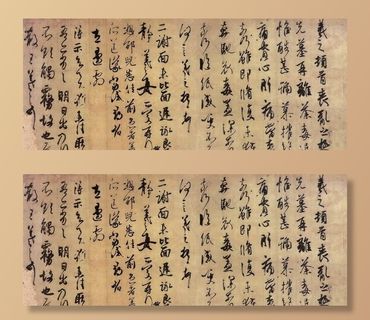 羲之頓首喪亂之極
先墓再離荼毒追
惟酷甚號慕摧
痛貫心肝痛當奈
奈何雖即脩復未
奔馳哀毒益深奈
奈何臨紙感哽不
何言羲之頓首
二謝面未比面遲詠良
靜羲之女愛再
想邵兒悉佳前患者善
左邊劇
得示知足下猶未佳耿
吾亦劣劣明日出乃
不欲觸霧故也
羲之頓首喪亂之極
先墓再離荼毒追
惟酷甚號慕摧
痛貫心肝痛當奈
奈何雖即脩復未
奔馳哀毒益深奈
奈何臨紙感哽不
何言羲之頓首
二謝面未比面遲詠良
靜羲之女愛再
想邵兒悉佳前患者善
左邊劇
得示知足下猶未佳耿
吾亦劣劣明日出乃
不欲觸霧故也